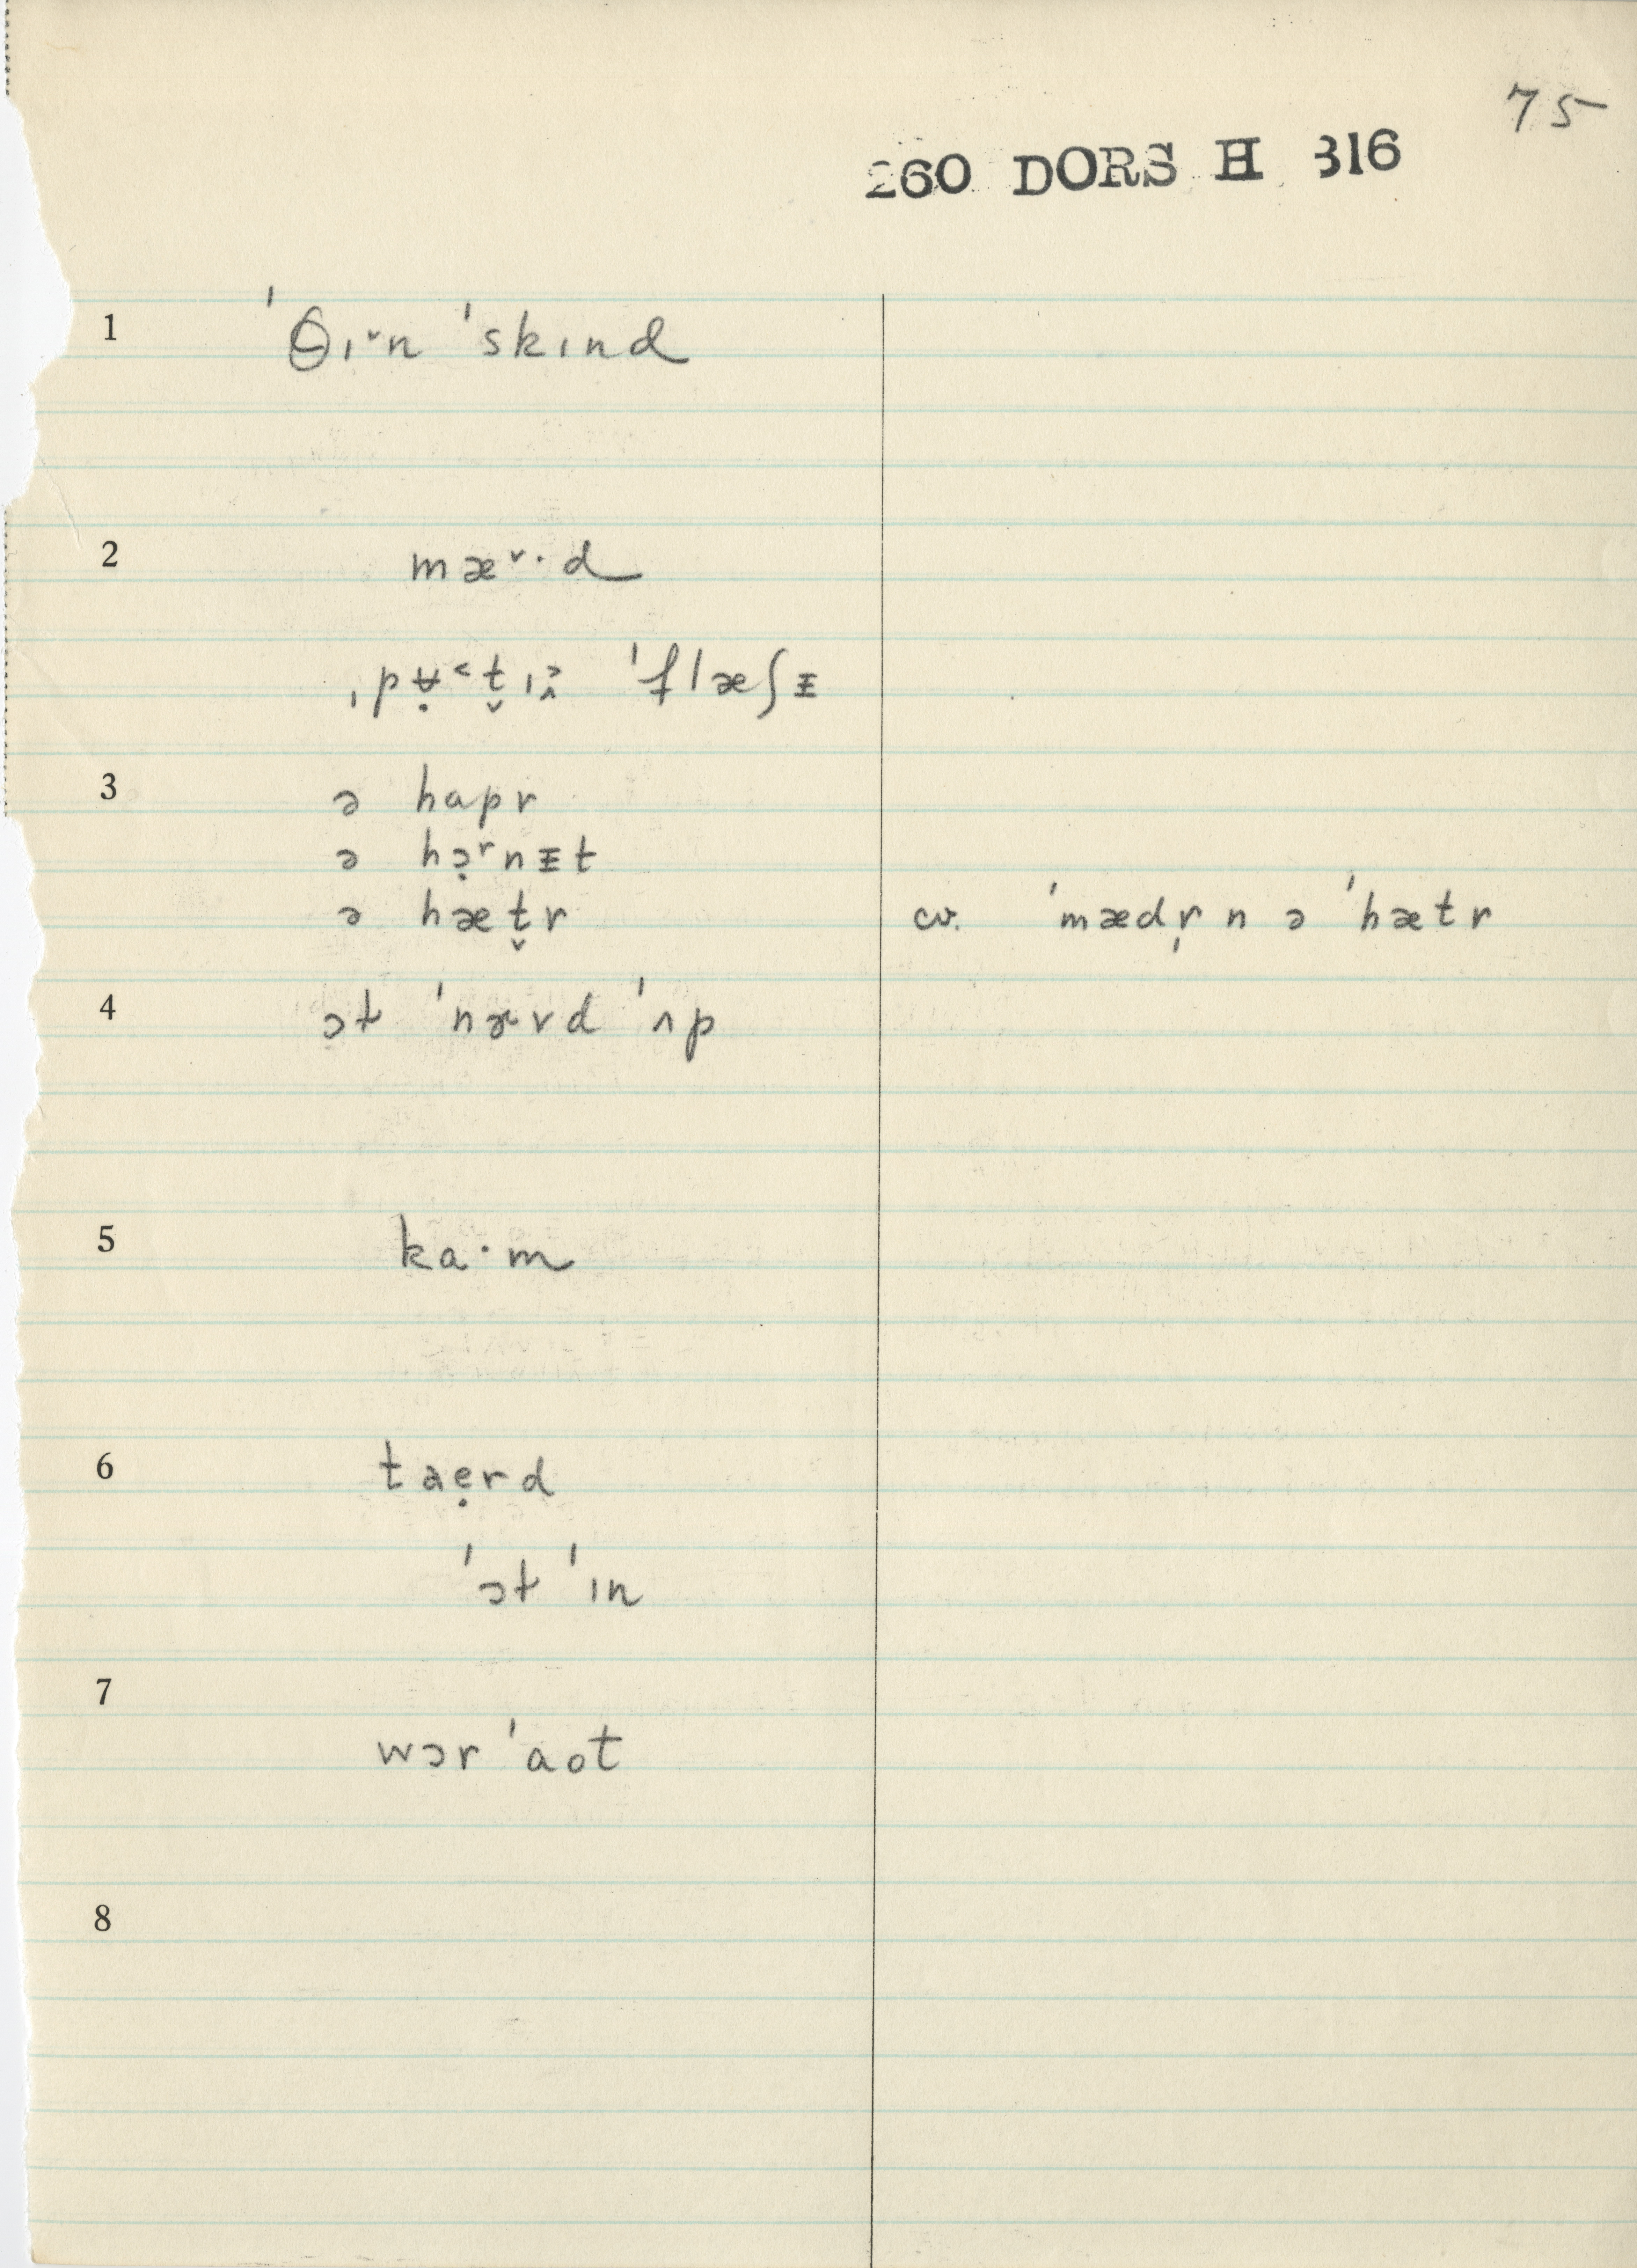 75
260 DORS H 316
1 ˈθɪ˅n ˈskɪnd
2 mæ˅·d
ˌpʉ̣˂t̬ɪ̭˃ ˈflæʃᵻ
3 ə hapr
ə hɔ̣ʳnᵻt
ə hæt̬r cv. ˈmædr̩ n ə ˈhætr
4 ɔt ˈnɚvd ˈʌp
5 ka·m
6 taẹrd
ˈɔt ˈɪn
7 wɔr ˈaot
8